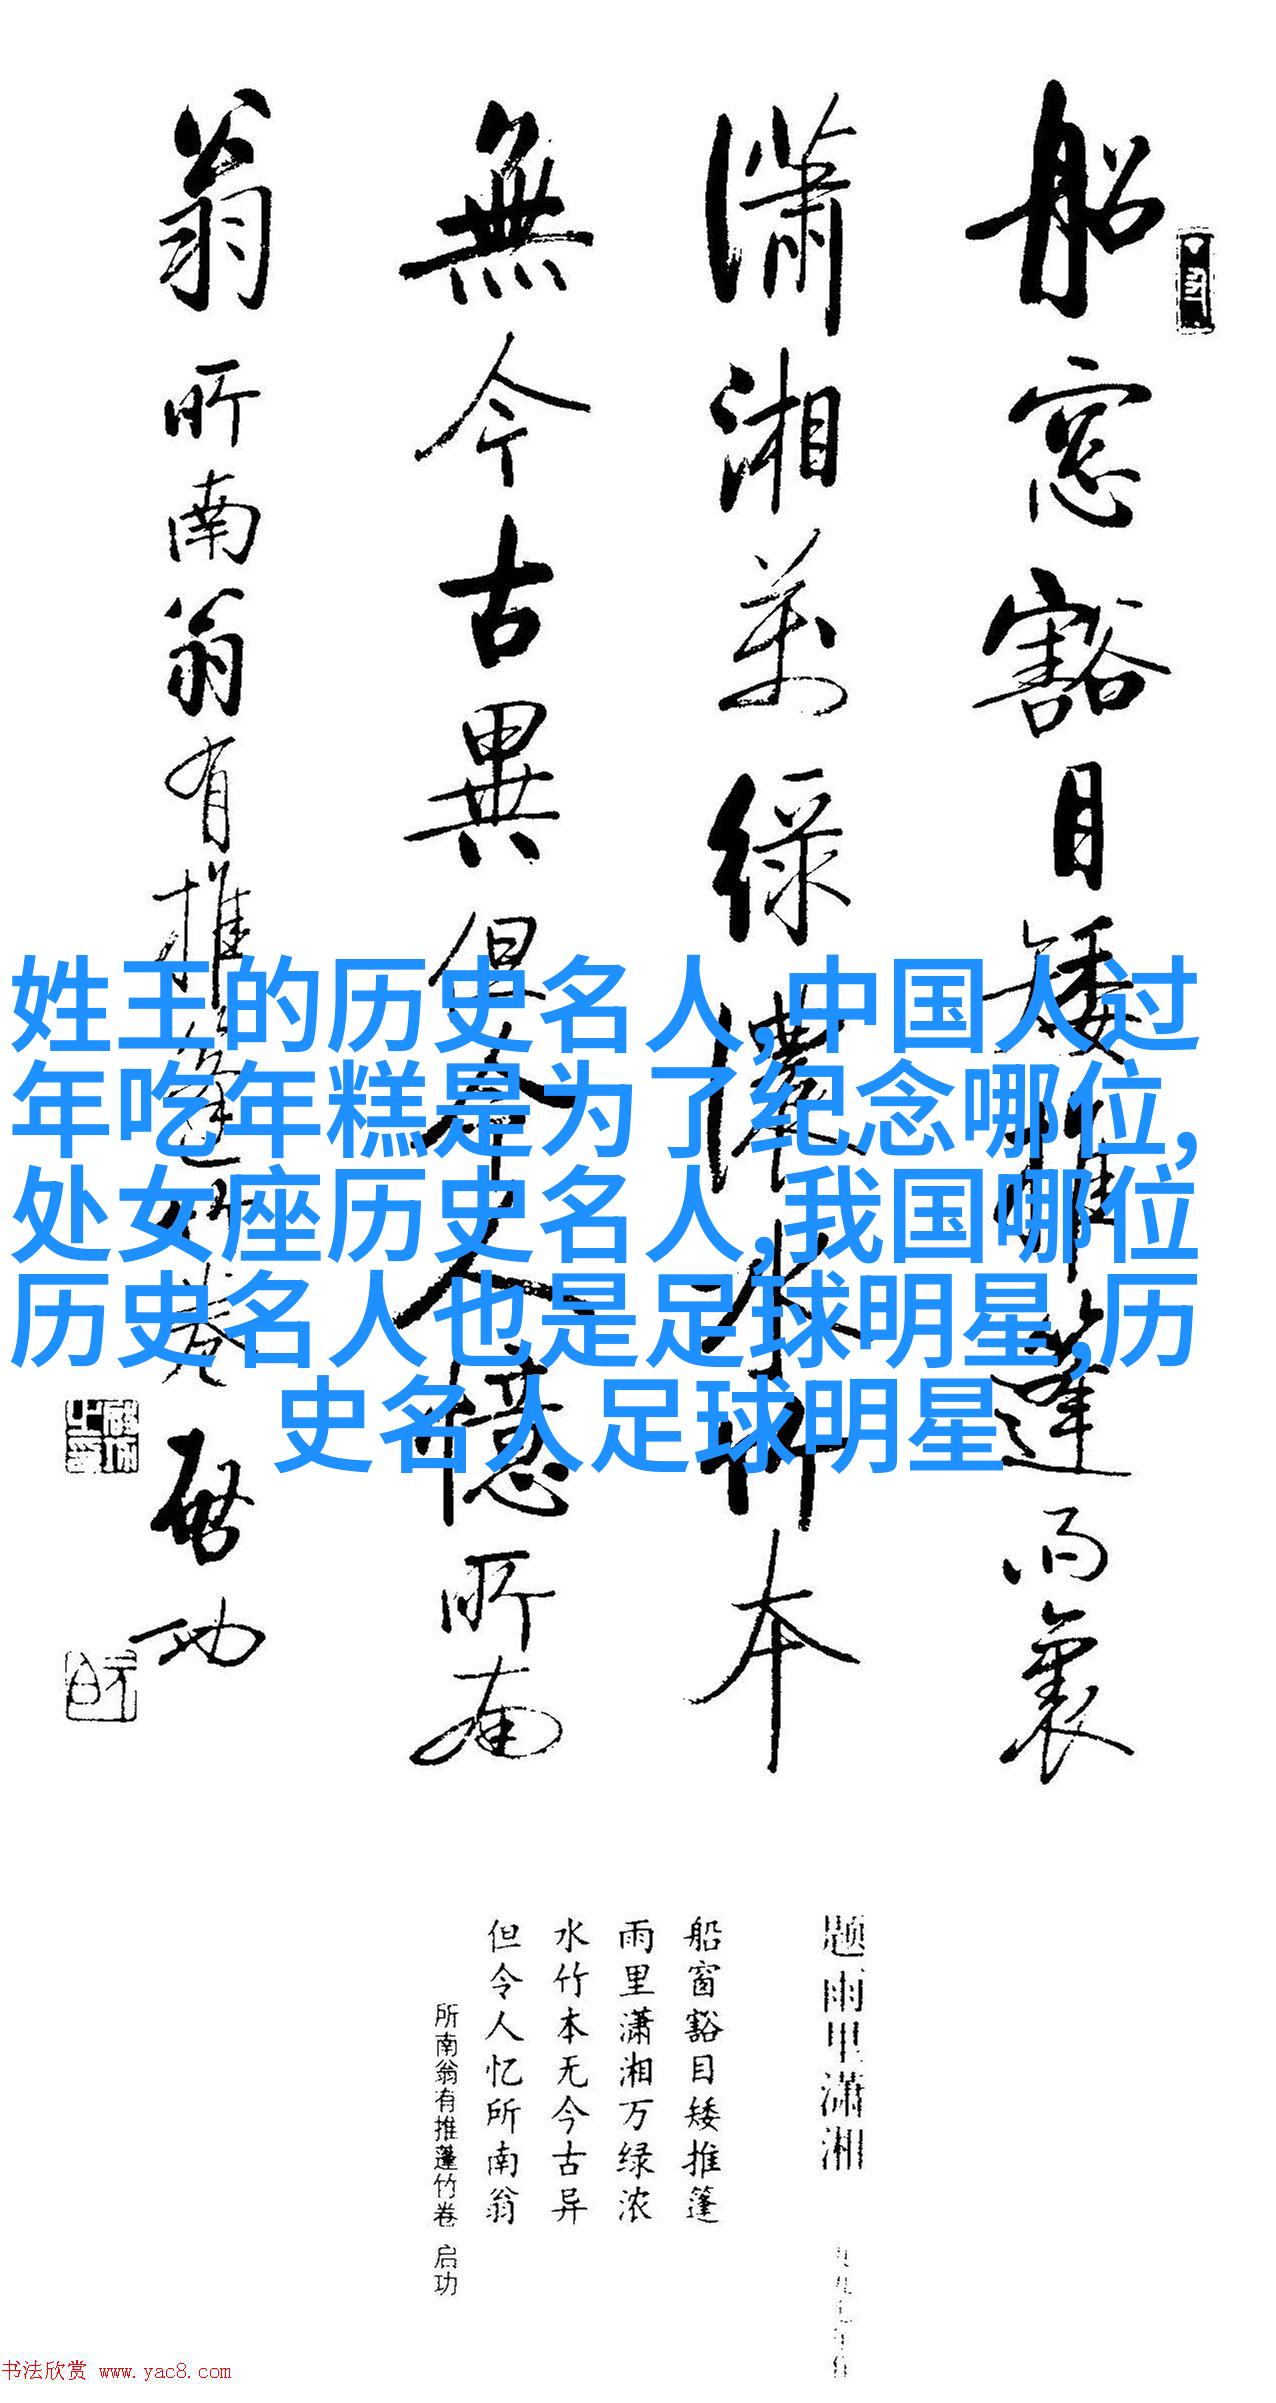 船窓豁目矮推篷雨裏
瀟湘萬緑濃水竹本
無今古異但令人憶所南
翁 所南翁有推篷竹卷 启功
姓王的历史名人,中国人过
年吃年糕是为了纪念哪位,
处女座历史名人,我国哪位
历史名人也是足球明星,历
史名人足球明星
题雨里潇湘
船窗豁目矮推篷
雨里潇湘万绿浓
水竹本无今古异
但令人忆所南翁
所南翁有推篷竹卷 启功
书法欣赏 www.yac8.com